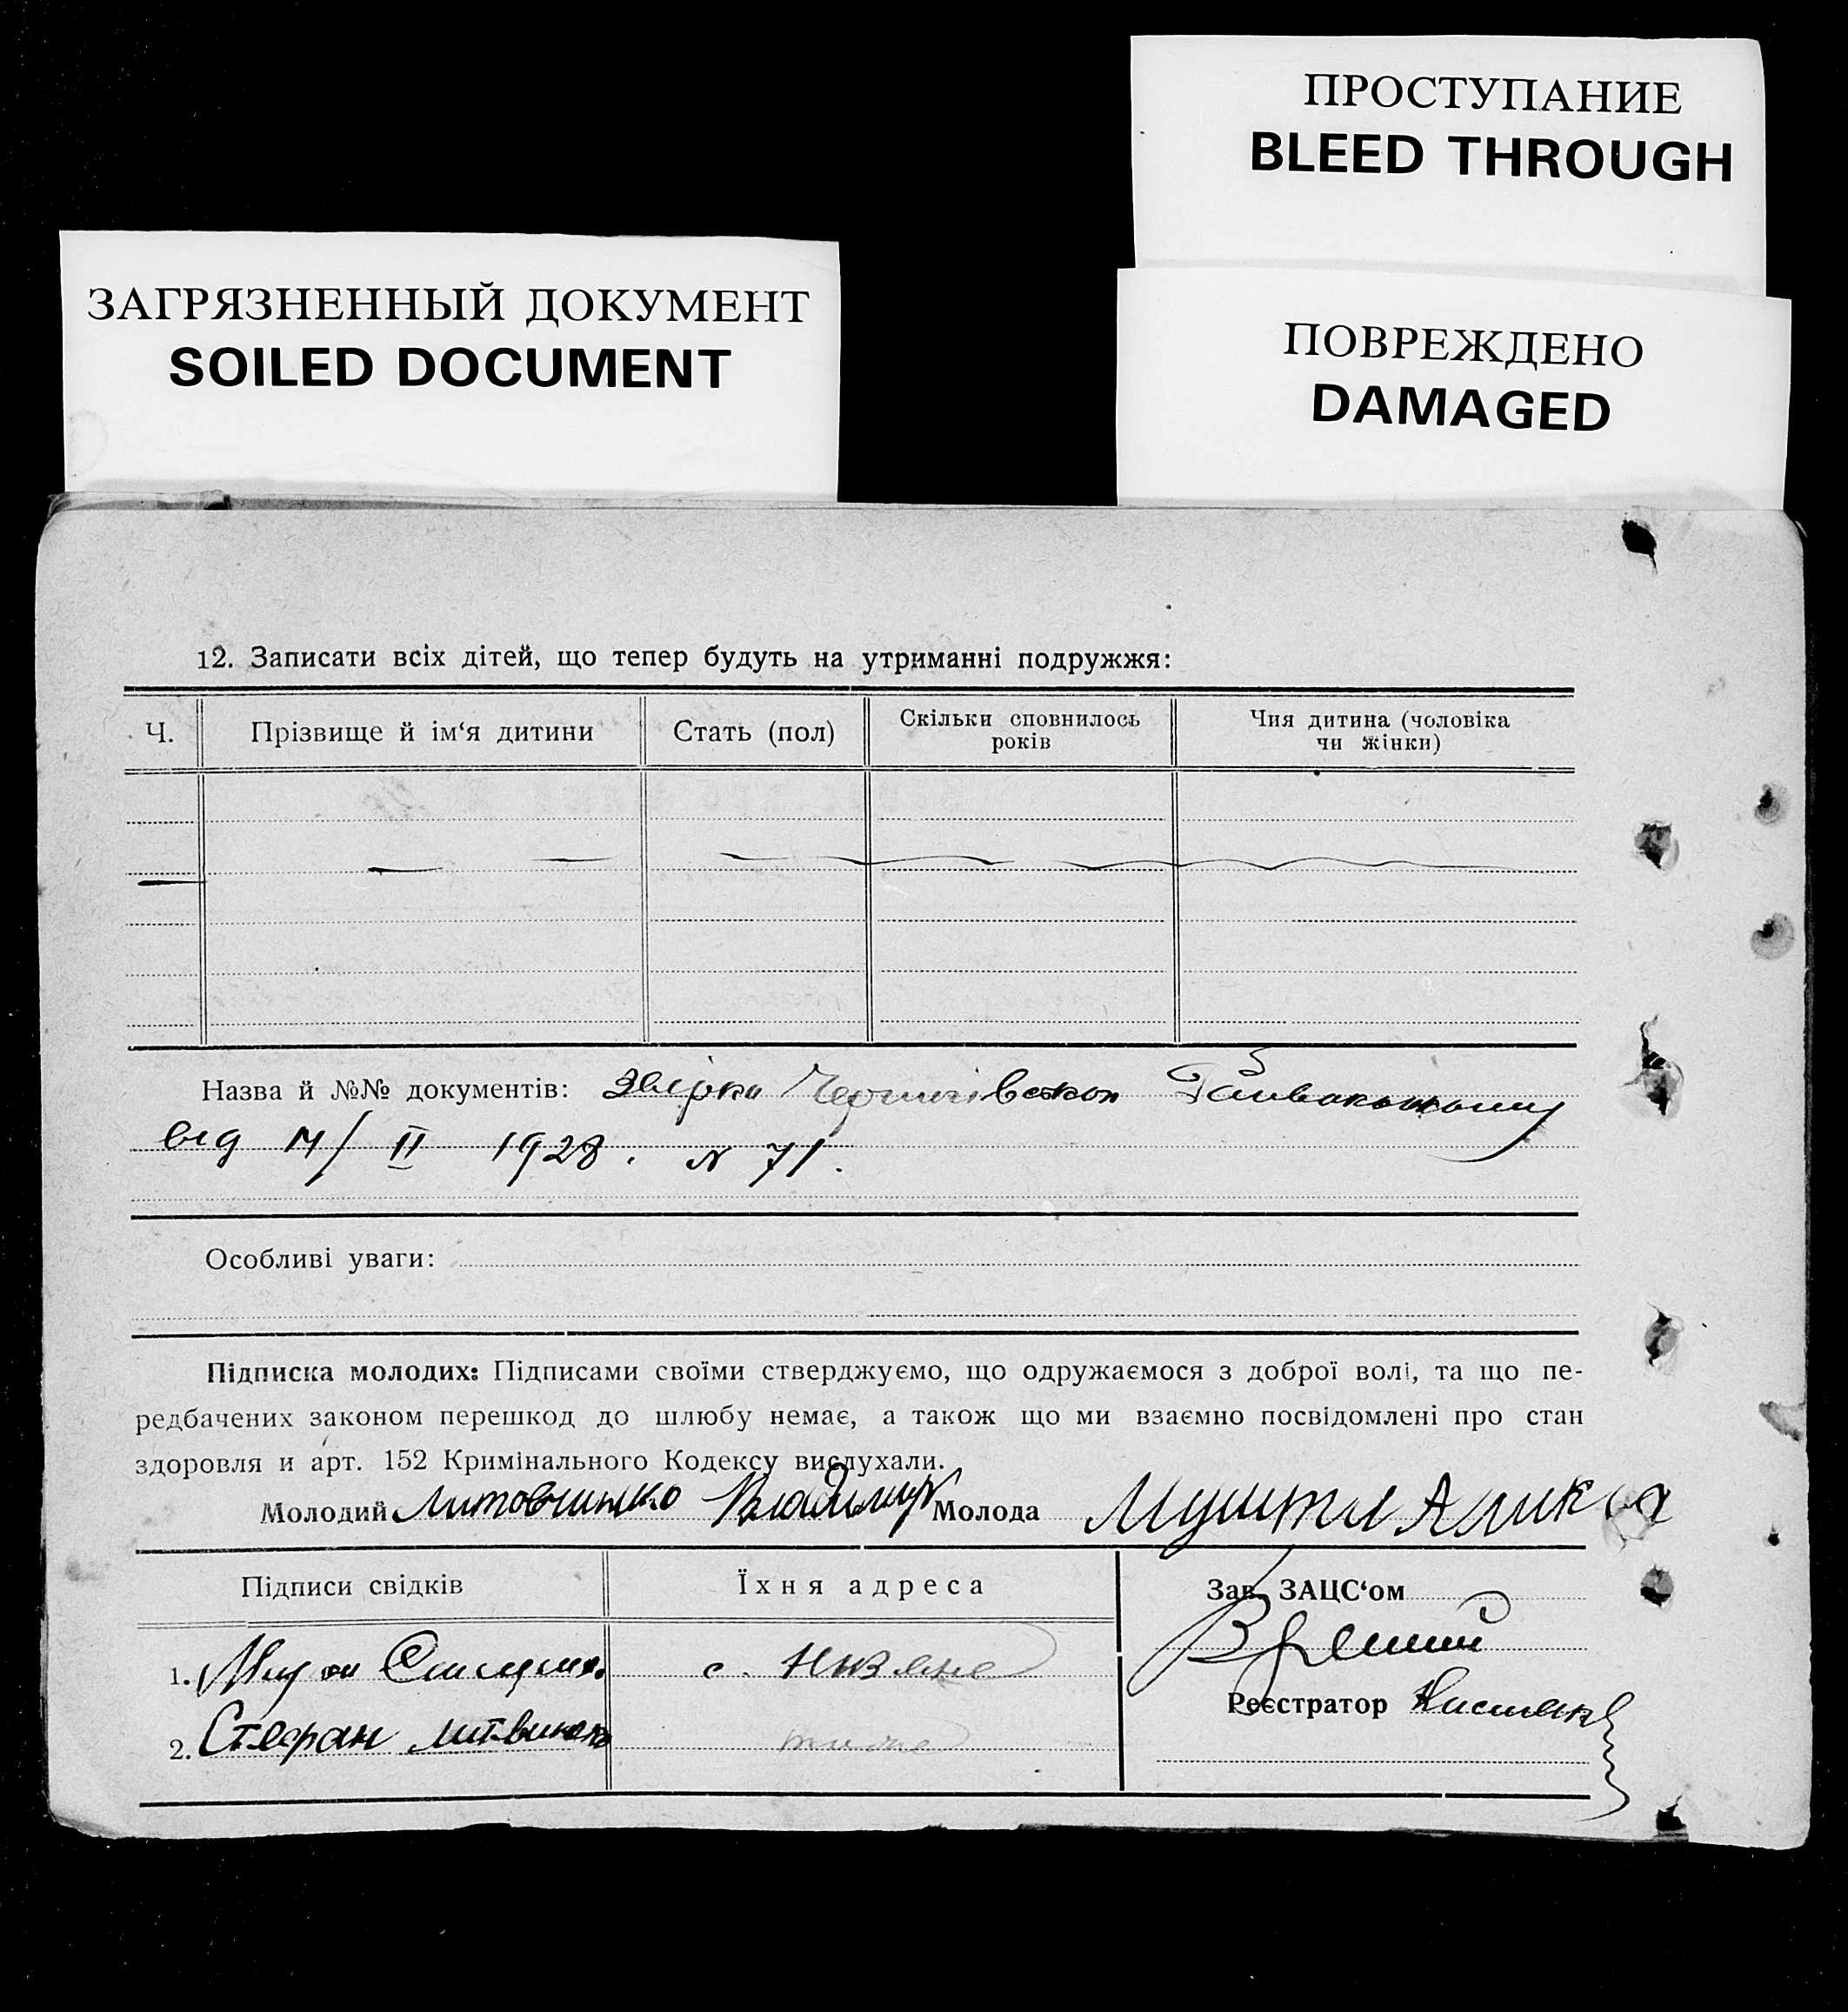 ПРОСТУПАНИЕ
BLEED THROUGH
ЗАГРЯЗНЕННЫЙ ДОКУМЕНТ
SOILED DOCUMENT
ПОВРЕЖДЕНО
DAMAGED
12. Записати всіх дітей, що тепер будуть на утриманні подружжя:
Ч.
Прізвище й ім‘я дитини
Стать (пол)
Скільки сповнилось
років
Чия дитина (чоловіка
чи жінки)
Назва й №№ документів:
від / II 1928. N 71.
Особливі уваги:
Підписка молодих: Підписами своїми стверджуємо, що одружаємося з доброї волі, та що пе-
редбачених законом перешкод до шлюбу немає, а також що ми взаємно посвідомлені про стан
здоровля и арт. 152 Кримінального Кодексу вислухали.
Молодий Владимир Молода
Підписи свідків
Їхня адреса
Зав. ЗАЦС‘ом
1. с.
Реєстратор
2. Стефан